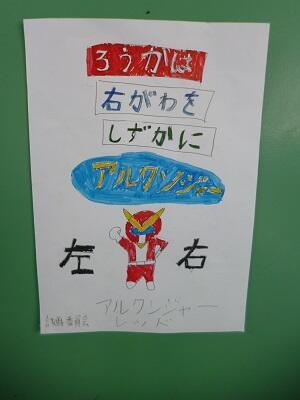 ろうかは
右がわを
しずかに
アルクンジャー
左 右
アルクンジャー
レッド
委員会